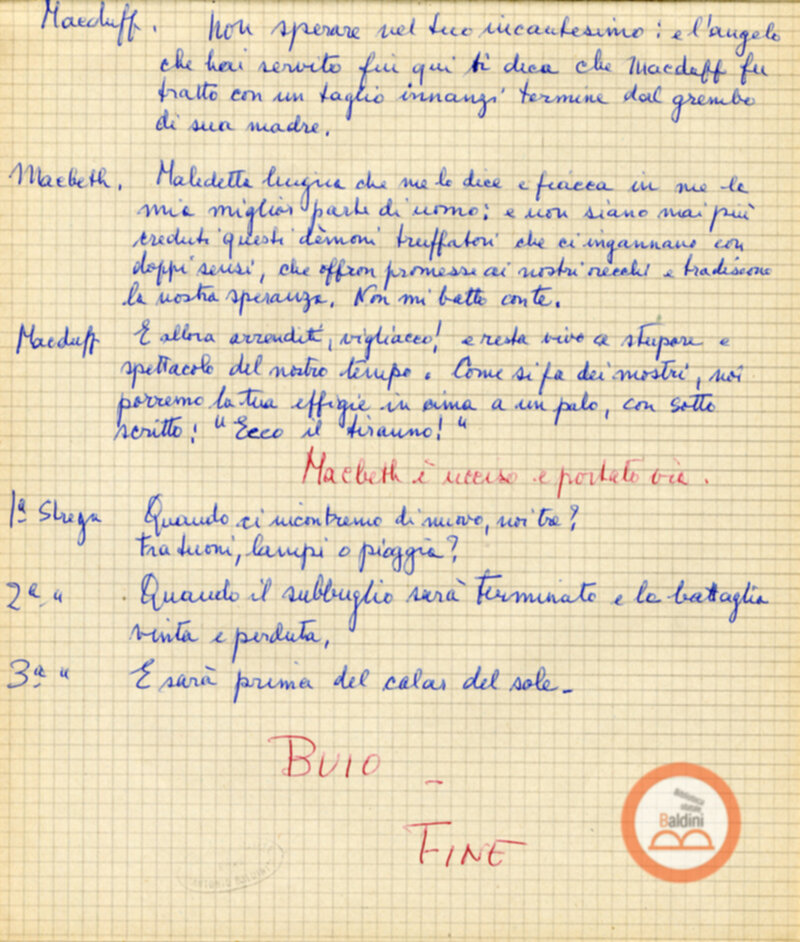 Macduff. Non sperare nel tuo incantesimo: e l'angelo
che hai servito fin qui ti dica che Macduff fu
tratto con un taglio innanzi termine dal grembo
di sua madre.
Macbeth. Maledetta lingua che me lo dice e fiacca in me la
mia miglior parte di uomo: e non siano mai più
creduti questi dèmoni truffatori che ci ingannano con
doppi sensi, che offron promesse ai nostri orecchi e tradiscono
la nostra speranza. Non mi batto con te.
Macduff E allora arrenditi, vigliacco! e resta vivo a stupore e
spettacolo del nostro tempo. Come si fa dei mostri, noi
porremo la tua effigie in cima a un palo, con sotto
scritto: "Ecco il tiranno!"
Macbeth è ucciso e portato via.
1ª Strega Quando ci incontremo di nuovo, noi tre?
tra tuoni, lampi o pioggia?
2ª " Quando il subbuglio sarà terminato e la battaglia
vinta e perduta,
3ª " E sarà prima del calar del sole-
BUIO -
FINE
Biblioteca
statale
Baldini